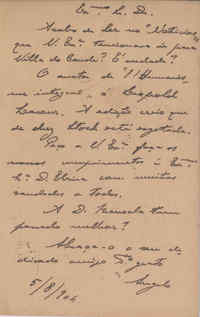 Exmo. S. D.
Acabo de ler no "Noticias"
que V. Exa. tencionava ir para
Villa do Conde? É verdade?
O auctor de "l'Humanis-
me integral", é Léopold
Lacour. A edição creio que
de chez Stock está esgotada.
Peço a V. Exa. faça os
nossos cumprimentos á Exma.
Sra. D. Elvira com muitas
saudades a todos.
A D. Manuela tem
passado melhor?
Abraça-o o seu de-
dicado amigo
Angelo
5/8/904